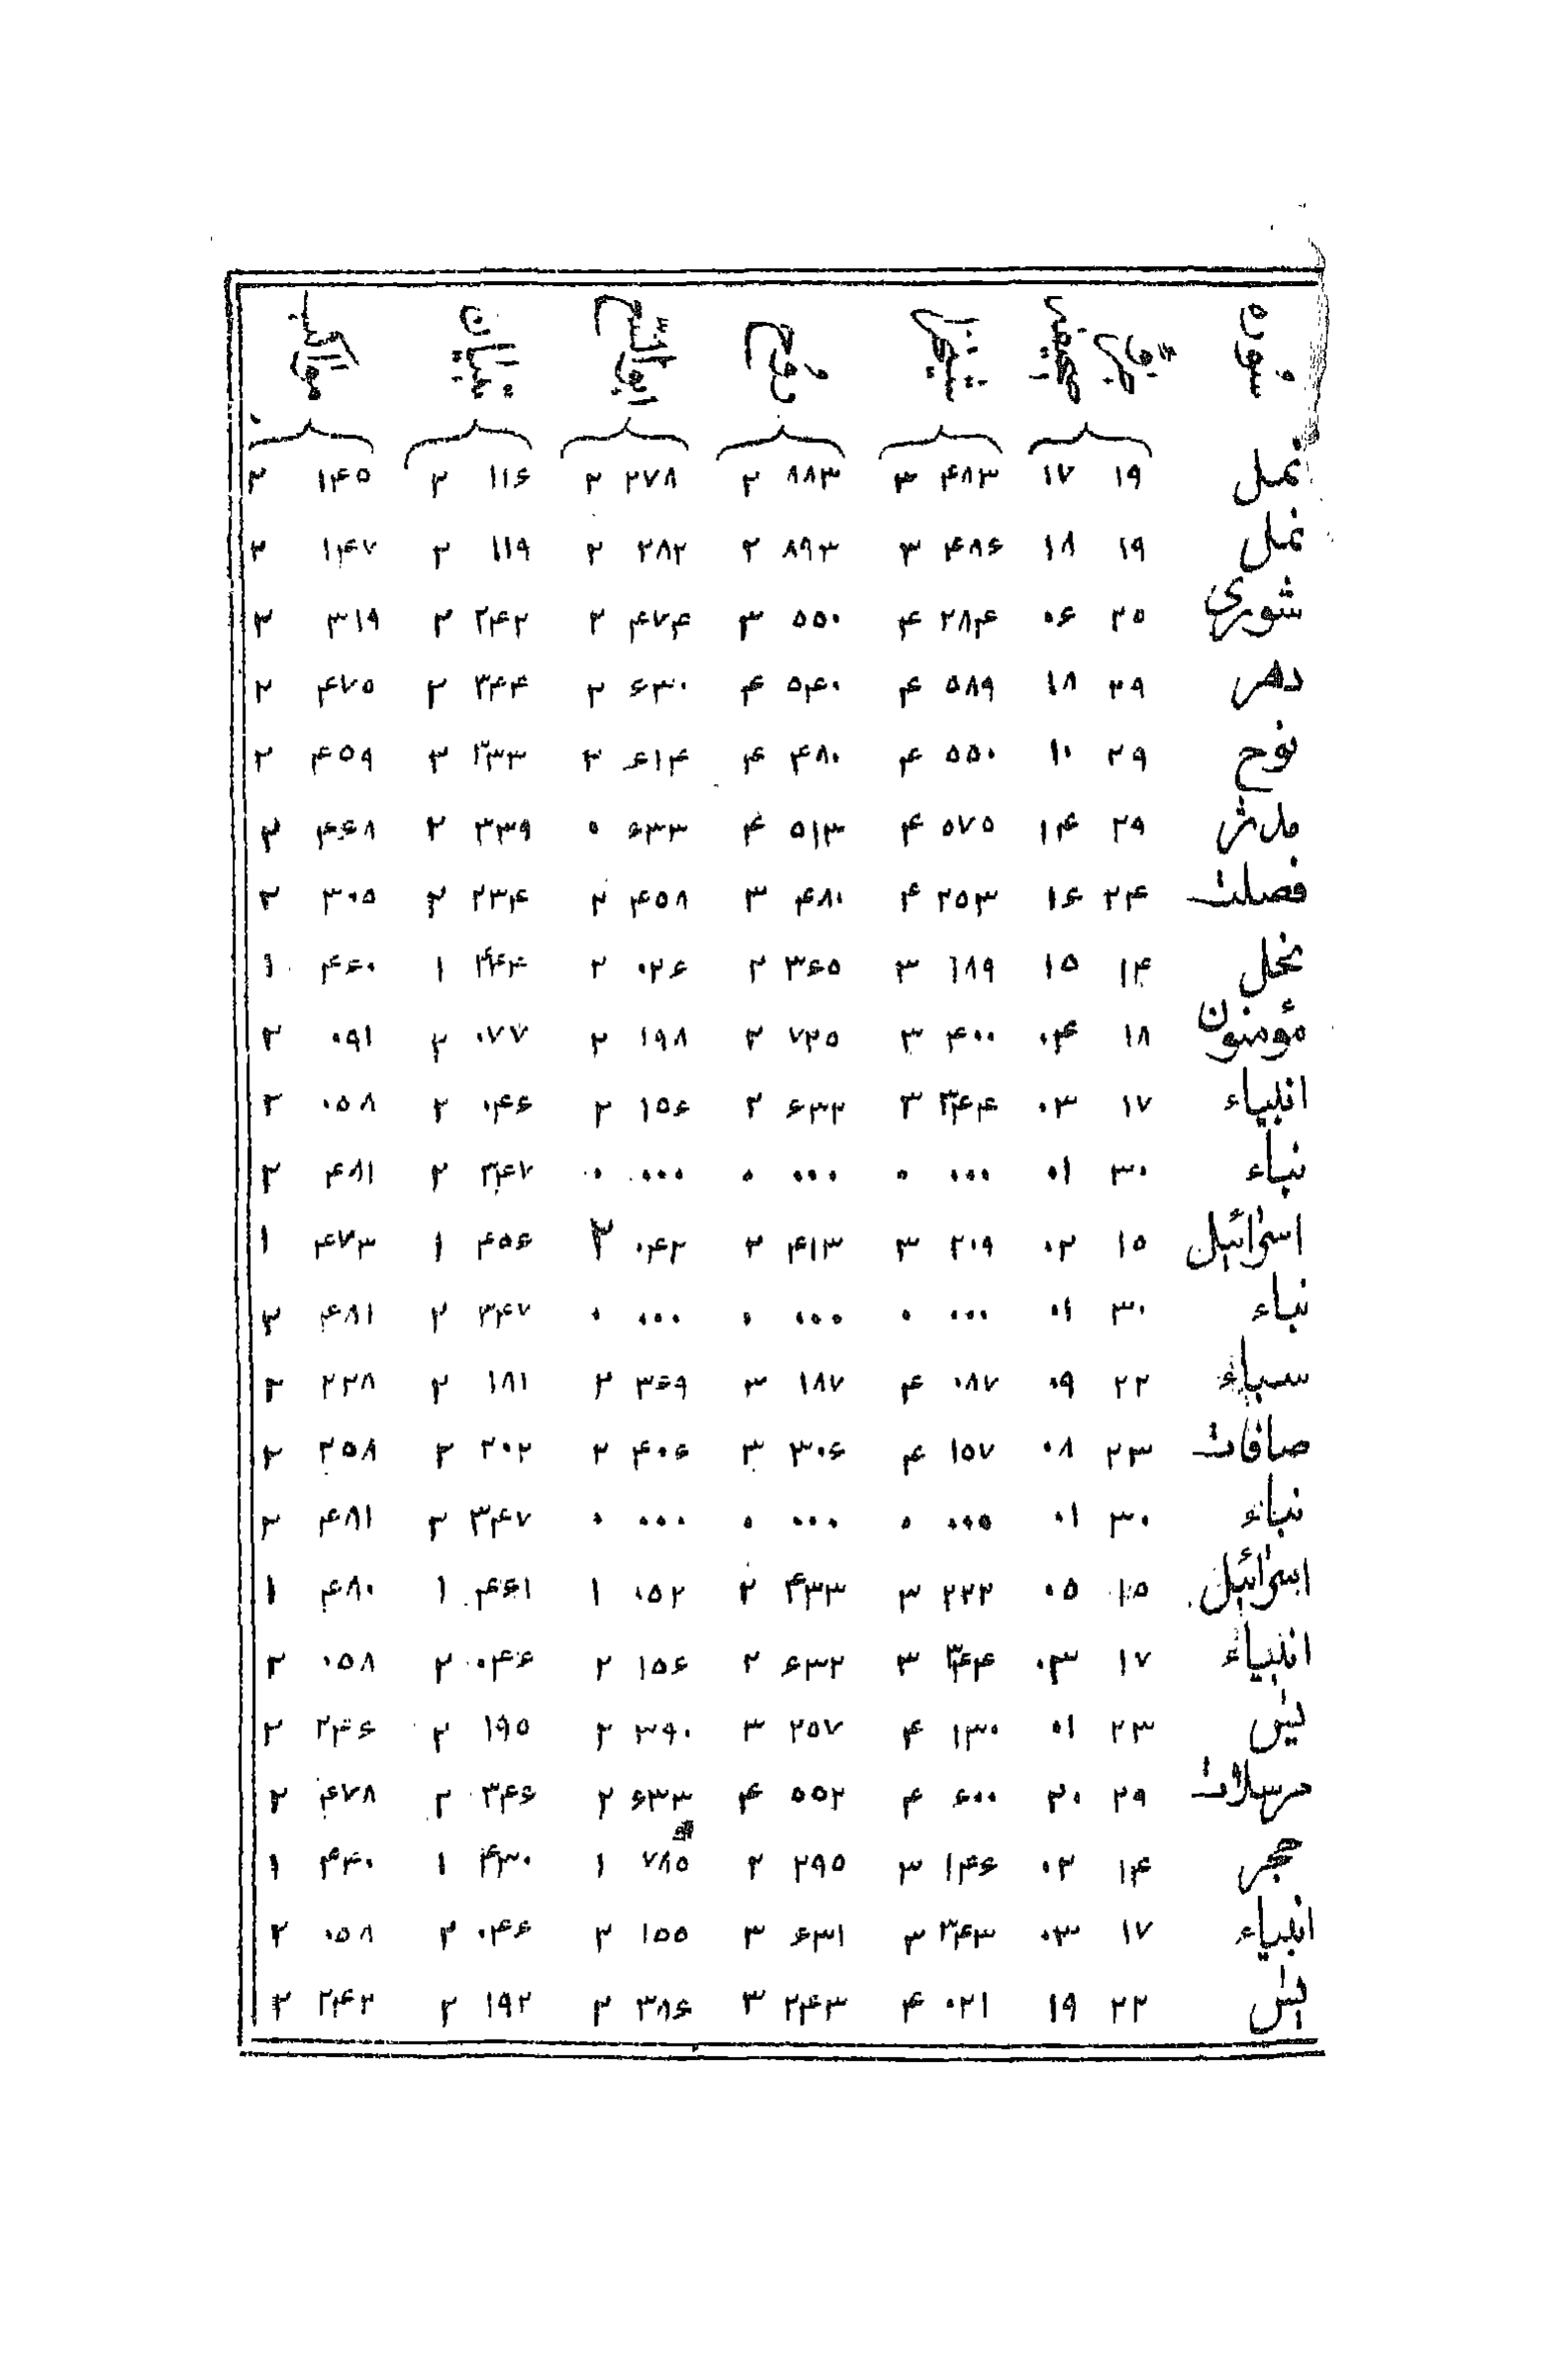 سوره
نمل ۱۹ ۱۷ ۴۸۳ ۳ ۸۸۳ ۲ ۲۷۸ ۲ ۱۱۶ ۲ ۱۴۵ ۲
نمل ۱۹ ۱۸ ۴۸۶ ۳ ۸۹۳ ۲ ۲۸۲ ۲ ۱۱۹ ۲ ۱۴۷ ۲
شوری ۲۵ ۰۶ ۲۸۴ ۴ ۵۵۰ ۳ ۴۷۴ ۲ ۲۴۲ ۲ ۳۱۹ ۲
دهر ۲۹ ۱۸ ۵۸۹ ۴ ۵۴۰ ۴ ۶۳۰ ۲ ۳۴۴ ۲ ۴۷۵ ۲
نوح ۲۹ ۱۰ ۵۵۰ ۴ ۴۸۰ ۴ ۶۱۴ ۲ ۳۳۳ ۲ ۴۵۹ ۲
مدثر ۲۹ ۱۴ ۵۷۵ ۴ ۵۱۳ ۴ ۶۳۳ ۰ ۳۳۹ ۲ ۴۶۸ ۲
فصلت ۲۴ ۱۶ ۲۵۳ ۴ ۴۸۰ ۳ ۴۵۸ ۲ ۲۳۴ ۲ ۳۰۵ ۲
نحل ۱۴ ۱۵ ۱۸۹ ۳ ۳۶۵ ۲ ۰۲۶ ۲ ۴۴۴ ۱ ۴۶۰ ۱
مؤمنون ۱۸ ۰۴ ۴۰۰ ۳ ۷۲۵ ۲ ۱۹۸ ۲ ۰۷۷ ۲ ۰۹۱ ۲
انبیاء ۱۷ ۰۳ ۳۴۴ ۳ ۶۳۲ ۲ ۱۵۶ ۲ ۰۴۶ ۲ ۰۵۸ ۲
نباء ۳۰ ۰۱ ۰۰۰ ۰ ۰۰۰ ۰ ۰۰۰ ۰ ۳۴۷ ۲ ۴۸۱ ۲
اسرائیل ۱۵ ۰۲ ۲۰۹ ۳ ۴۱۳ ۲ ۰۴۲ ۲ ۴۵۶ ۱ ۴۷۳ ۱
نباء ۳۰ ۰۱ ۰۰۰ ۰ ۰۰۰ ۰ ۰۰۰ ۰ ۳۴۷ ۲ ۴۸۱ ۲
سباء ۲۲ ۰۹ ۰۸۷ ۴ ۱۸۷ ۳ ۳۶۹ ۲ ۱۸۱ ۲ ۲۲۸ ۲
صافات ۲۳ ۰۸ ۱۵۷ ۴ ۳۰۶ ۳ ۴۰۶ ۲ ۲۰۲ ۲ ۲۵۸ ۲
نباء ۳۰ ۰۱ ۰۰۰ ۰ ۰۰۰ ۰ ۰۰۰ ۰ ۳۴۷ ۲ ۴۸۱ ۲
اسرائیل ۱۵ ۰۵ ۲۲۲ ۳ ۴۳۳ ۲ ۰۵۲ ۱ ۴۶۱ ۱ ۴۸۰ ۱
انبیاء ۱۷ ۰۳ ۳۴۴ ۳ ۶۳۲ ۲ ۱۵۶ ۲ ۰۴۶ ۲ ۰۵۸ ۲
یٰس ۲۳ ۰۱ ۱۳۰ ۴ ۲۵۷ ۳ ۳۹۰ ۲ ۱۹۵ ۲ ۲۴۶ ۲
مرسلات ۲۹ ۲۰ ۶۰۰ ۴ ۵۵۲ ۴ ۶۳۳ ۲ ۳۴۶ ۲ ۴۷۸ ۲
حجر ۱۴ ۰۲ ۱۴۶ ۳ ۲۹۵ ۲ ۷۸۵ ۱ ۴۳۰ ۱ ۴۴۰ ۱
انبیاء ۱۷ ۰۳ ۳۴۳ ۳ ۶۳۱ ۳ ۱۵۵ ۲ ۰۴۶ ۲ ۰۵۸ ۲
یٰس ۲۲ ۱۹ ۰۲۱ ۴ ۲۴۳ ۳ ۳۸۶ ۲ ۱۹۲ ۲ ۲۴۲ ۲